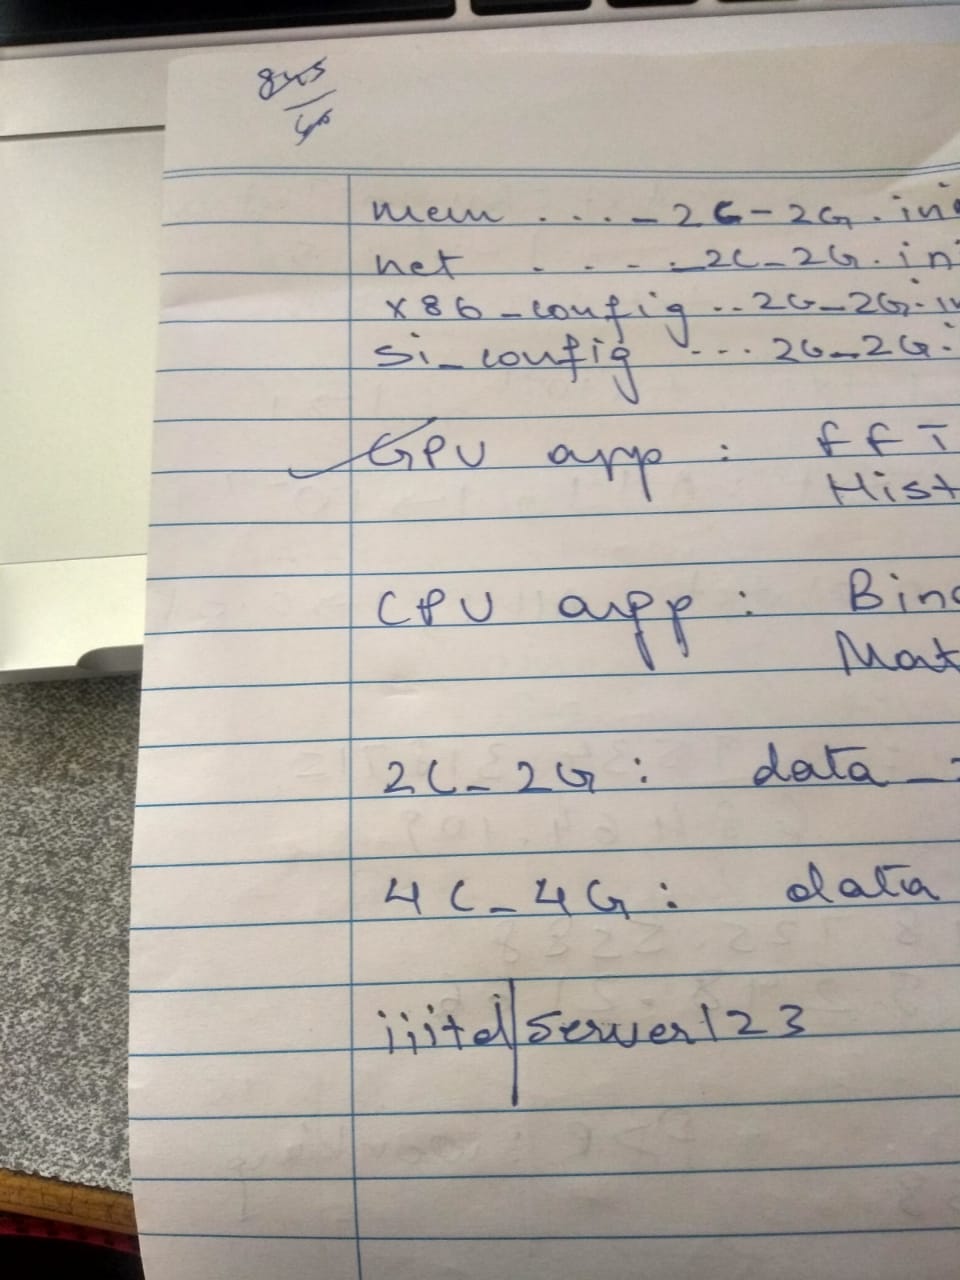 mem ...._2G-2G.ini
net ...._2C-2G.in
x86-config..2G-2G.in
si_config ...2G-2G.
GPU app : FFT
Hist
CPU app : Bino
Mat
2C-2G : data -
4C-4G : data
iiitd|server123